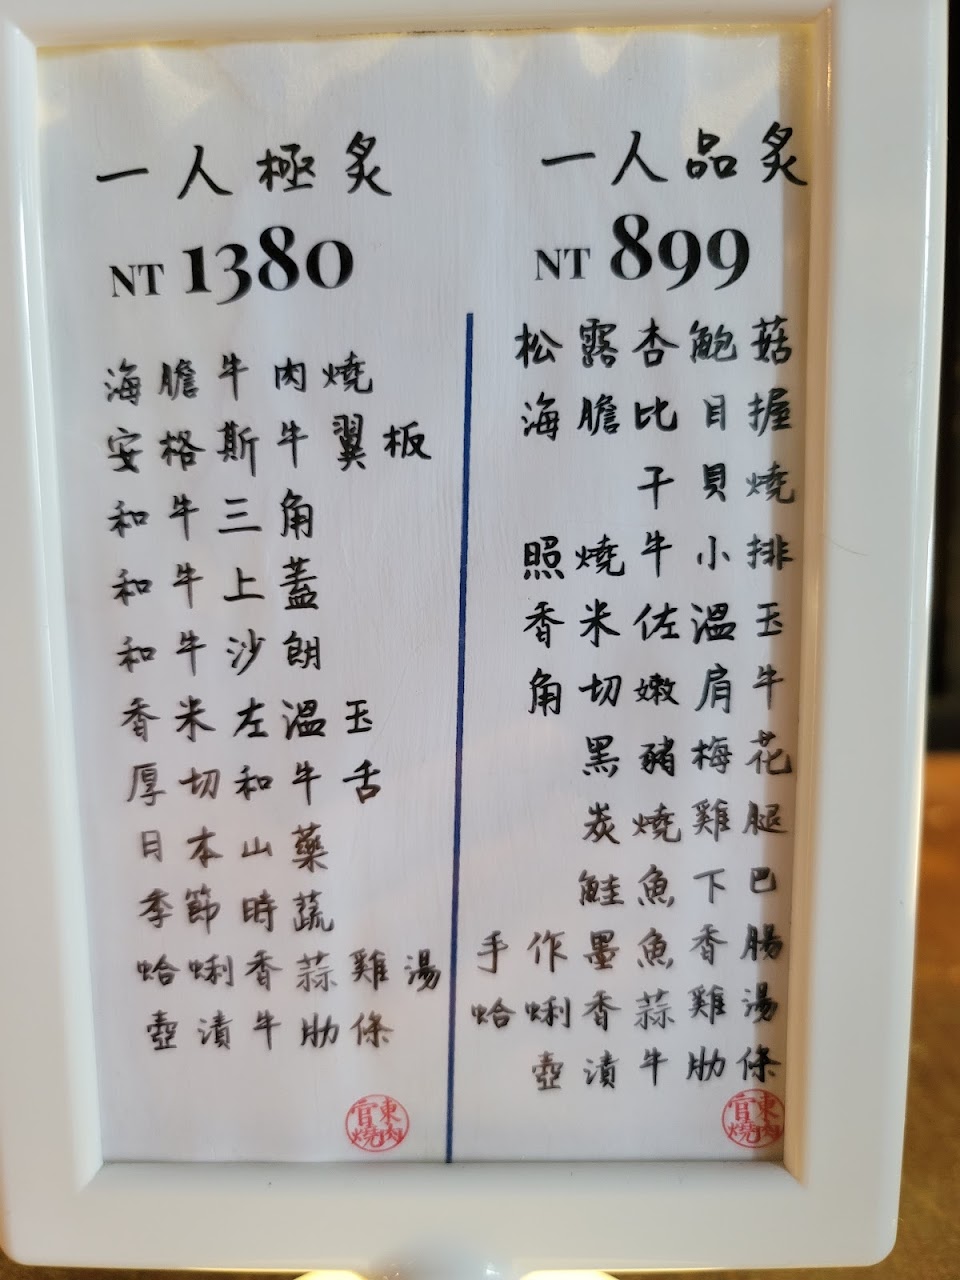 一人極炙
NT 1380
海膽牛肉燒
安格斯牛翼板
和牛三角
和牛上蓋
和牛沙朗
香米左溫玉
厚切和牛舌
日本山藥
季節時蔬
蛤蜊香蒜雞湯
壺漬牛肋條
官東燒肉
一人品炙
NT 899
松露杏鮑菇
海膽比目握
干貝燒
照燒牛小排
香米佐溫玉
角切嫩肩牛
黑豬梅花
炭燒雞腿
鮭魚下巴
手作墨魚香腸
蛤蜊香蒜雞湯
壺漬牛肋條
官東燒肉